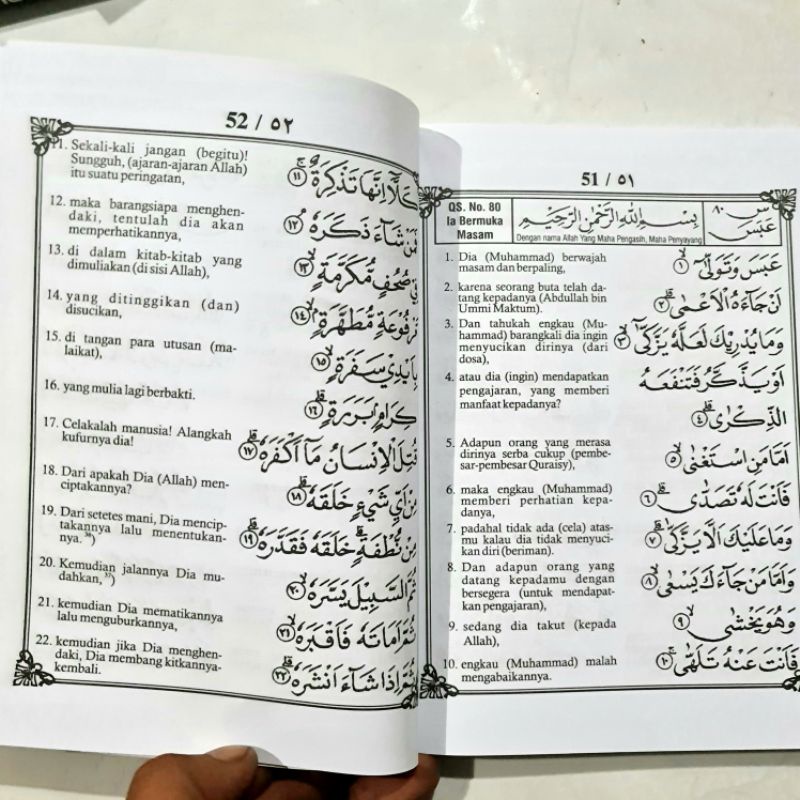 51 / ٥١
QS. No. 80
Ia Bermuka
Masam
بِسْمِ اللّٰهِ الرَّحْمٰنِ الرَّحِيْمِ
Dengan nama Allah Yang Maha Pengasih, Maha Penyayang
س ٨٠
عَبَسَ
1. Dia (Muhammad) berwajah
masam dan berpaling,
عَبَسَ وَتَوَلّٰىٓ ۙ ١
2. karena seorang buta telah da-
tang kepadanya (Abdullah bin
Ummi Maktum).
اَنْ جَاۤءَهُ الْاَعْمٰىۗ ٢
3. Dan tahukah engkau (Mu-
hammad) barangkali dia ingin
menyucikan dirinya (dari
dosa),
وَمَا يُدْرِيْكَ لَعَلَّهٗ يَزَّكّٰىٓ ۙ ٣
4. atau dia (ingin) mendapatkan
pengajaran, yang memberi
manfaat kepadanya?
اَوْ يَذَّكَّرُ فَتَنْفَعَهُ
الذِّكْرٰىۗ ٤
5. Adapun orang yang merasa
dirinya serba cukup (pembe-
sar-pembesar Quraisy),
اَمَّا مَنِ اسْتَغْنٰىۙ ٥
6. maka engkau (Muhammad)
memberi perhatian kepa-
danya,
فَاَنْتَ لَهٗ تَصَدّٰىۗ ٦
7. padahal tidak ada (cela) atas-
mu kalau dia tidak menyuci-
kan diri (beriman).
وَمَا عَلَيْكَ اَلَّا يَزَّكّٰىۗ ٧
8. Dan adapun orang yang
datang kepadamu dengan
bersegera (untuk mendapat-
kan pengajaran),
وَاَمَّا مَنْ جَاۤءَكَ يَسْعٰىۙ ٨
9. sedang dia takut (kepada
Allah),
وَهُوَ يَخْشٰىۙ ٩
10. engkau (Muhammad) malah
mengabaikannya.
فَاَنْتَ عَنْهُ تَلَهّٰىۚ ١٠
52 / ٥٢
11. Sekali-kali jangan (begitu)!
Sungguh, (ajaran-ajaran Allah)
itu suatu peringatan,
كَلَّآ اِنَّهَا تَذْكِرَةٌ ۚ ١١
12. maka barangsiapa menghen-
daki, tentulah dia akan
memperhatikannya,
شَاۤءَ ذَكَرَهٗ ۘ ١٢
13. di dalam kitab-kitab yang
dimuliakan (di sisi Allah),
فِيْ صُحُفٍ مُّكَرَّمَةٍۙ ١٣
14. yang ditinggikan (dan)
disucikan,
مَّرْفُوْعَةٍ مُّطَهَّرَةٍ ۢ ۙ ١٤
15. di tangan para utusan (ma-
laikat),
بِاَيْدِيْ سَفَرَةٍۙ ١٥
16. yang mulia lagi berbakti.
كِرَامٍ ۢ بَرَرَةٍۗ ١٦
17. Celakalah manusia! Alangkah
kufurnya dia!
قُتِلَ الْاِنْسَانُ مَآ اَكْفَرَهٗۗ ١٧
18. Dari apakah Dia (Allah) men-
ciptakannya?
مِنْ اَيِّ شَيْءٍ خَلَقَهٗۗ ١٨
19. Dari setetes mani, Dia mencip-
takannya lalu menentukan-
nya. ³⁶)
مِنْ نُّطْفَةٍۗ خَلَقَهٗ فَقَدَّرَهٗۗ ١٩
20. Kemudian jalannya Dia mu-
dahkan, ³⁷)
ثُمَّ السَّبِيْلَ يَسَّرَهٗۙ ٢٠
21. kemudian Dia mematikannya
lalu menguburkannya,
ثُمَّ اَمَاتَهٗ فَاَقْبَرَهٗۙ ٢١
22. kemudian jika Dia menghen-
daki, Dia membang kitkannya-
kembali.
ثُمَّ اِذَا شَاۤءَ اَنْشَرَهٗۗ ٢٢